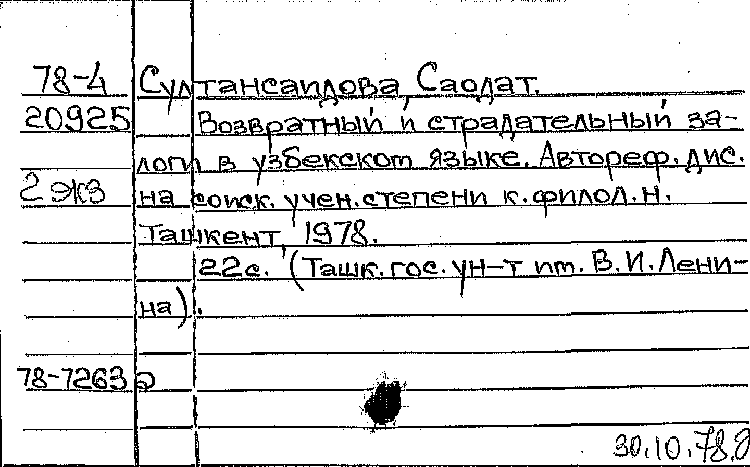 78-4 Султансаидова, Саодат.
20925 Возвратный и страдательный за-
логи в узбекском языке. Автореф. дис.
2 экз на соиск. учен. степени к. филол. н.
Ташкент, 1978.
22с. (Ташк. гос. ун-т им. В. И. Лени-
на).
78-7263
30.10.78.